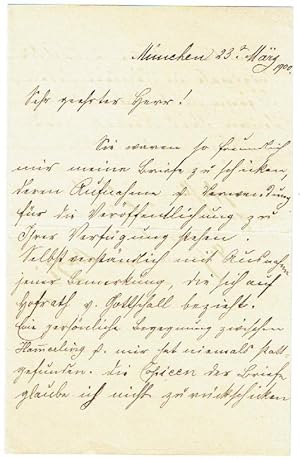 München 23. März 1900.
Sehr geehrter Herr!
Sie waren so freundlich
mir meine Briefe zu schicken,
deren Aufnahme & Verwendung
für die Veröffentlichung zu
Ihrer Verfügung stehen.
Selbstverständlich mit Ausnahme
jener Bemerkung, die sich auf
Hofrath v. Gottschall bezieht.
Eine persönliche Begegnung zwischen
Hamerling & mir hat niemals statt-
gefunden. Die Copieen der Briefe
glaube ich nicht zurückschicken